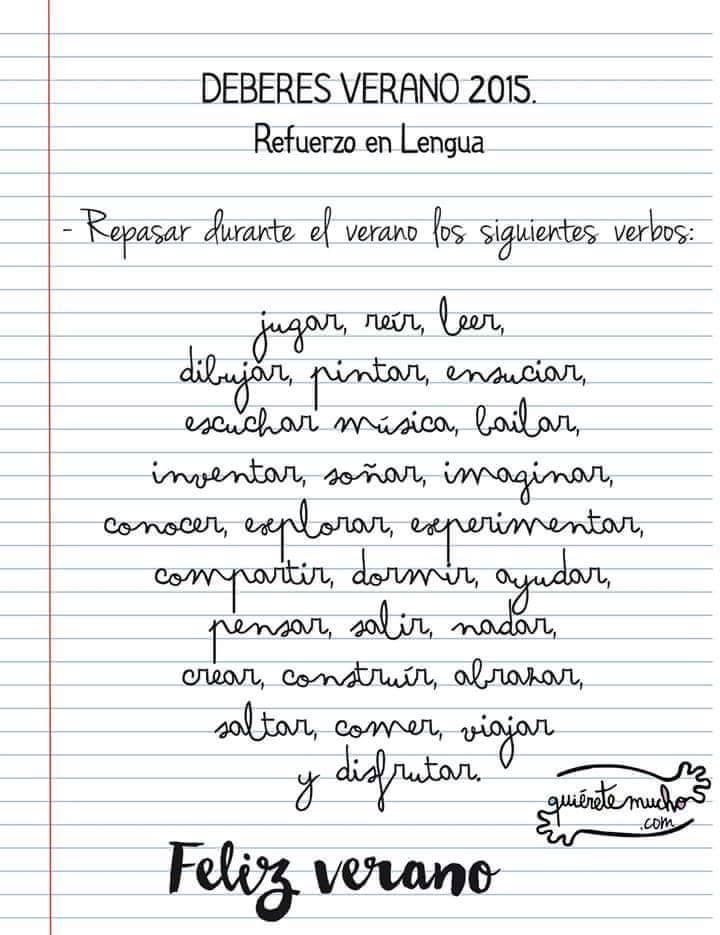 DEBERES VERANO 2015.
Refuerzo en Lengua
- Repasar durante el verano los siguientes verbos:
jugar, reír, leer,
dibujar, pintar, ensuciar,
escuchar música, bailar,
inventar, soñar, imaginar,
conocer, explorar, experimentar,
compartir, dormir, ayudar,
pensar, salir, nadar,
crear, construír, abrazar,
saltar, comer, viajar
y disfrutar.
quiérete mucho
.com
Feliz verano